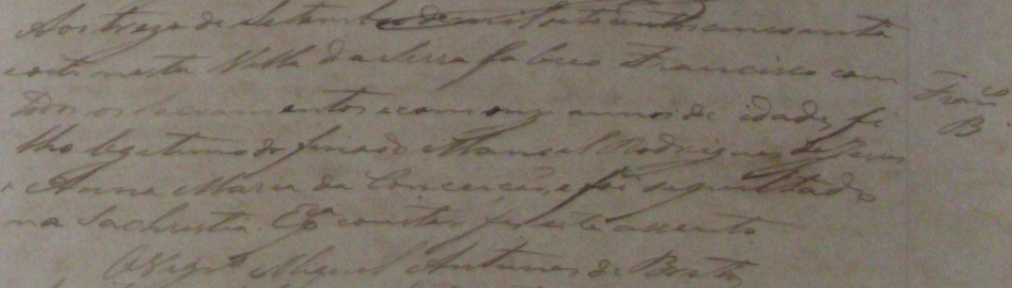 Aos treze de Setembro de mil oito centos cincoenta
e oito nesta Villa da Serra faleceo Francisco com
todos os sacramentos e com onze annos de idade, fi
lho legitimo do finado Manoel Rodrigues de Jesus
e Anna Maria da Conceição, e foi sepultado
na Sachristia. E pª constar fiz este assento
O Vigrº Miguel Antunes de Brito
Francº
B